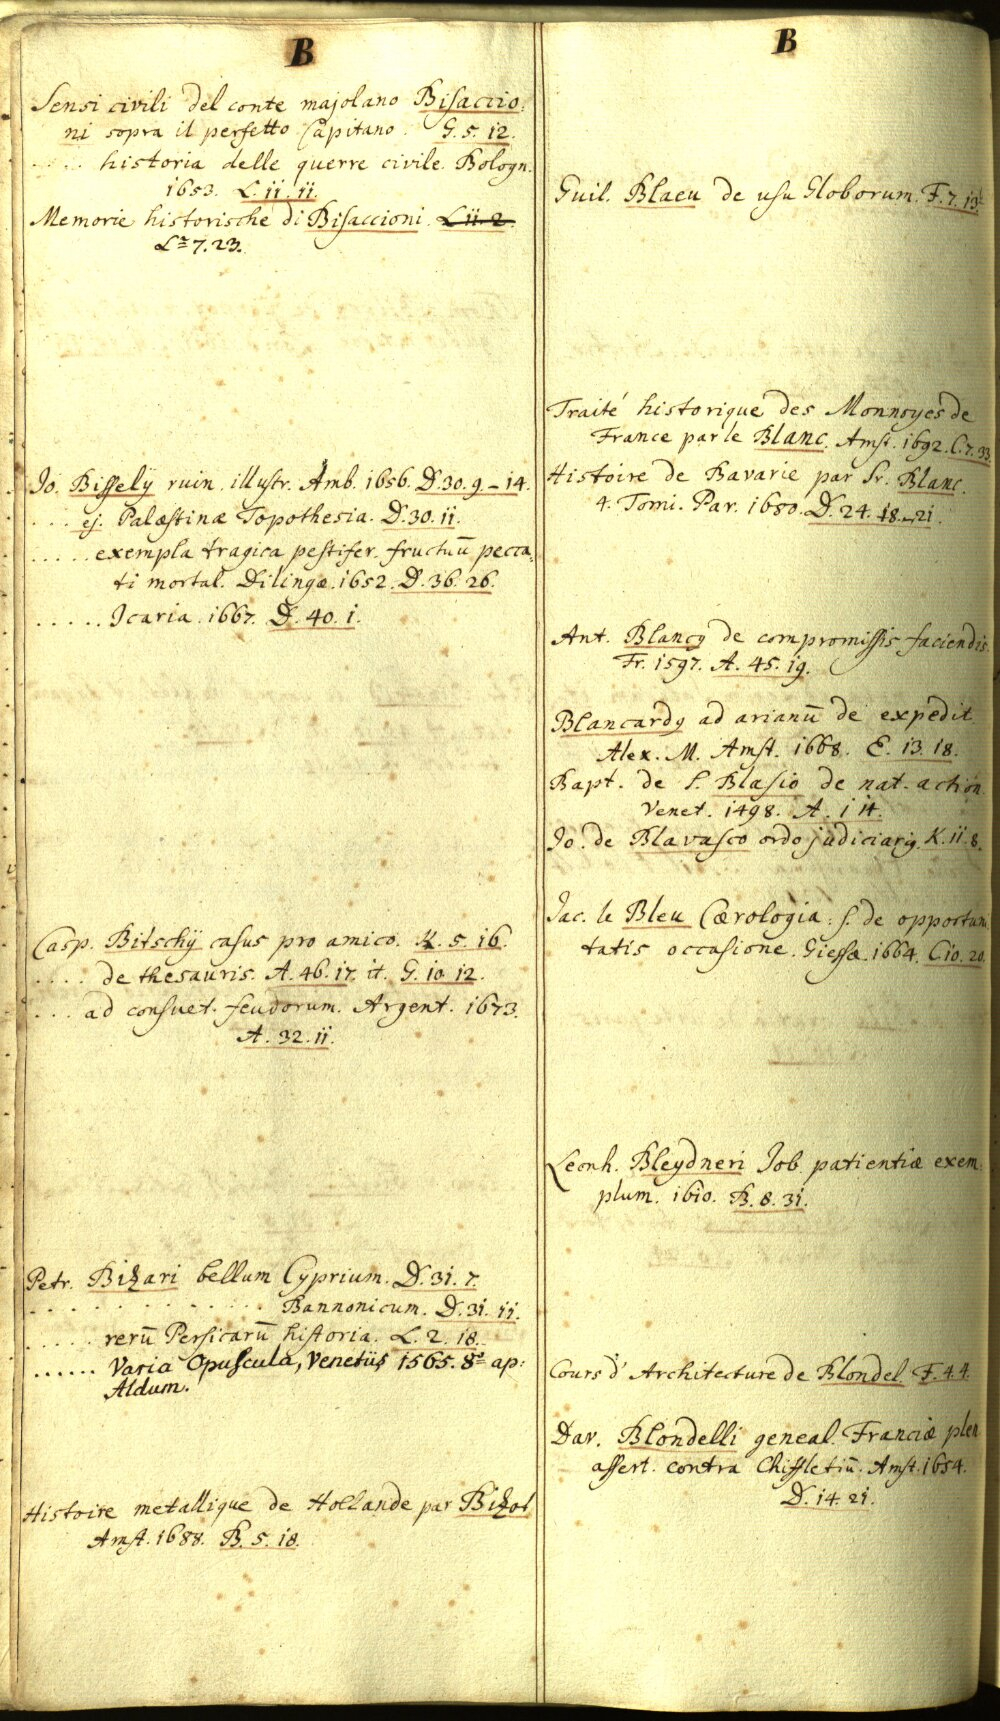 B
Sensi civili del conte majolano Bisaccio:
ni sopra il perfetto Capitano. G. 5. 12.
.... historia delle guerre civile. Bologn.
1653. L. ii. ii.
Memorie historische di Bisaccioni. L ii. 2.
L. 7. 23.
Jo. Bissely ruin. illustr. Amb. 1656. D. 30. 9. - 14.
.... ej. Palæstinæ Topothesia. D. 30. ii.
..... exempla tragica pestifer. fructuū pecca,
ti mortal. Dilingæ. 1652. D. 36. 26.
..... Icaria. 1667. D. 40. i.
Casp. Bitschÿ casus pro amico. K. 5. i6.
.... de thesauris. A. 46. i7. it. G. io. i2.
... ad consuet. feudorum. Argent. 1673.
A. 32. ii.
Petr. Bizari bellum Cyprium. D. 3i. 7.
............ Bannonicum. D. 3i. ii.
.... rerū Persicarū historia. L. 2. i8.
...... Varia Opuscula, Venetiis 1565. 8º ap:
Aldum.
Histoire metallique de Hollande par Bizot
Amst. 1688. B. 5. i8.
B
Guil. Blaeu de usu Globorum. F. 7. i3.
Traité historique des Monnoyes de
France par le Blanc. Amst. 1692. C. 7. 33
Histoire de Bavarie par Sr. Blanc.
4. Tomi. Par. 1680. D. 24. i8.-2i.
Ant. Blancy de compromissis faciendis.
Fr. 1597. A. 45. i9.
Blancardy ad arianū de expedit
Alex. M. Amst. 1668. E. i3. i8.
Bapt. de S. Blasio de nat. action.
Venet. 1498. A. i i4.
Jo. de Blavasco ordo judiciarig. K. ii. 8.
Jac. le Bleu Cærologia. s. de opportuni
tatis occasione. Giessæ. 1664. C io. 20.
Leonh. Bleydneri Job patientiæ exem:
plum. i6i0. B. 8. 3i.
Cours d'Architecture de Blondel. F. 4. 4.
Dav. Blondelli geneal. Franciæ plen
assert. contra Chiffletiū. Amst. 1654.
D. i4. 2i.